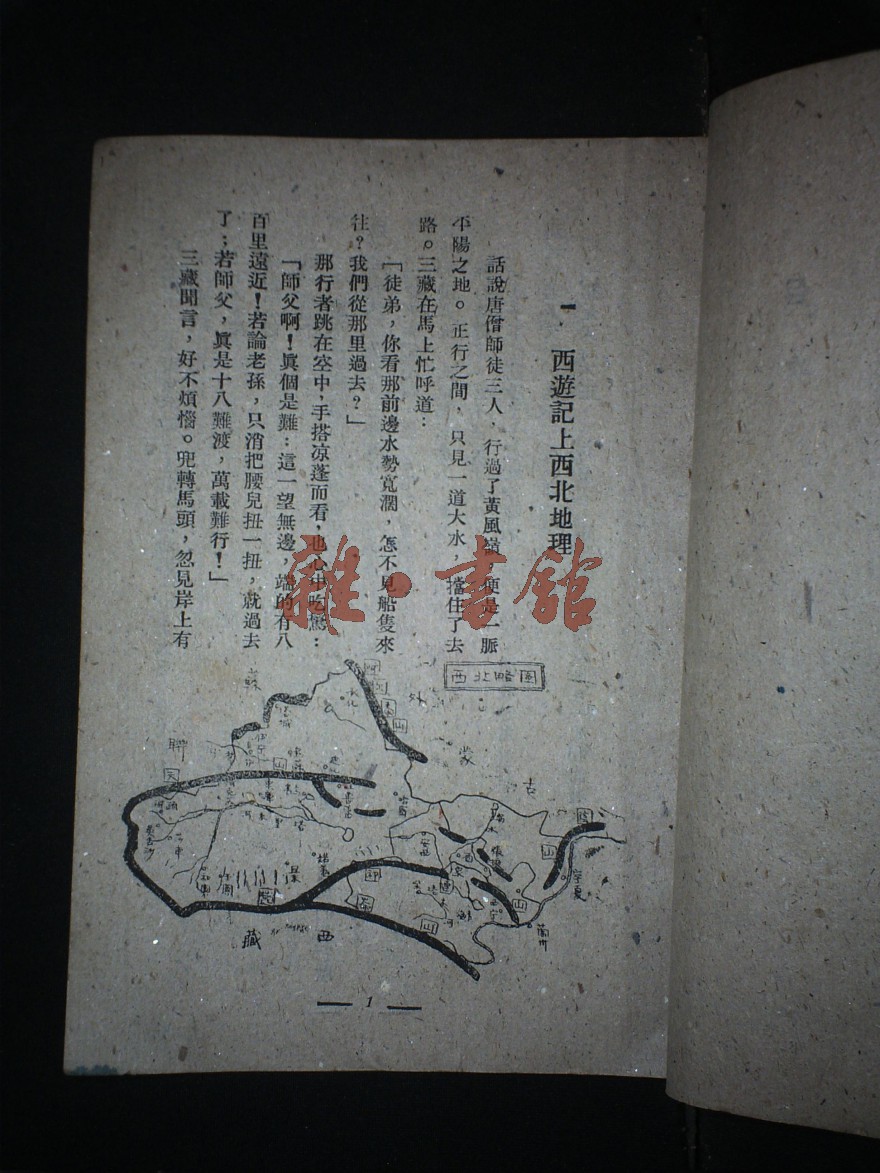 一　西遊記上西北地理
話說唐僧師徒三人，行過了黃風嶺，便是一脈
平陽之地。正行之間，只見一道大水，擋住了去
路。三藏在馬上忙呼道：
「徒弟，你看那前邊水勢寬濶，怎不見船隻來
往？我們從那里過去？」
那行者跳在空中，手搭凉蓬而看，也心中吃驚：
「師父啊！眞個是難：這一望無邊，端的有八
百里遠近！若論老孫，只消把腰兒扭一扭，就過去
了；若師父，眞是十八難渡，萬載難行！」
三藏聞言，好不煩惱。兜轉馬頭，忽見岸上有
雜·書館
西北略圖
蘇
聯
外
蒙
古
山
山
山
山
寧夏
蘭州
哈密
西
藏
1